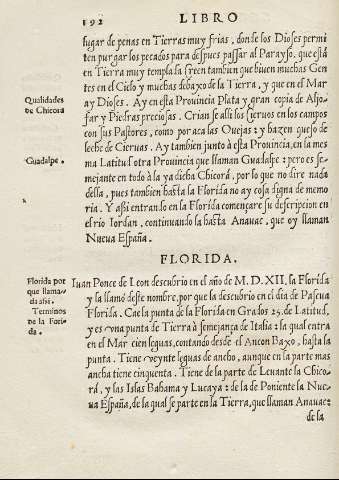 192 LIBRO
lugar de penas en Tierras muy frias, donde los Dioses permi
ten purgar los pecados para despues passar al Parayso, que está
en Tierra muy templa la: creen tambien que biuen muchas Gen
tes en el Cielo y muchas debaxo de la Tierra, y que en el Mar
ay Dioses. Ay en esta Prouincia Plata y gran copia de Aljo-
Qualidades
de Chicorá
far y Piedras preciosas. Crian se alli los cieruos en los campos
con sus Pastores, como por aca las Ouejas: y hazen queso de
leche de Cieruas. Ay tambien junto à esta Prouincia, en la mes
Guadalpe.
ma Latitud otra Prouincia que llaman Guadalpe: pero es se-
mejante en todo à la ya dicha Chicorá, por lo que no dire nada
della, pues tambien hasta la Florida no ay cosa digna de memo
ria. Y assi entrando en la Florida començare su descripcion en
el rio Iordan, continuando la hasta Anauac, que oy llaman
Nueua España.
FLORIDA.
Florida por
que llama-
da assi.
Terminos
de la Flori-
da.
Iuan Ponce de Leon descubrio en el año de M.D.XII, la Florida
y la llamó deste nombre, por que la descubrio en el dia de Pascua
Florida. Cae la punta de la Florida en Grados 25. de Latitud,
y es vna punta de Tierra à semejança de Italia: la qual entra
en el Mar cien leguas, contando desde el Ancon Baxo, hasta la
punta. Tiene veynte leguas de ancho, aunque en la parte mas
ancha tiene cinquenta. Tiene de la parte de Leuante la Chico-
rá, y las Islas Bahama y Lucaya: de la de Poniente la Nue-
ua España, de la qual se parte en la Tierra, que llaman Anauac:
de la